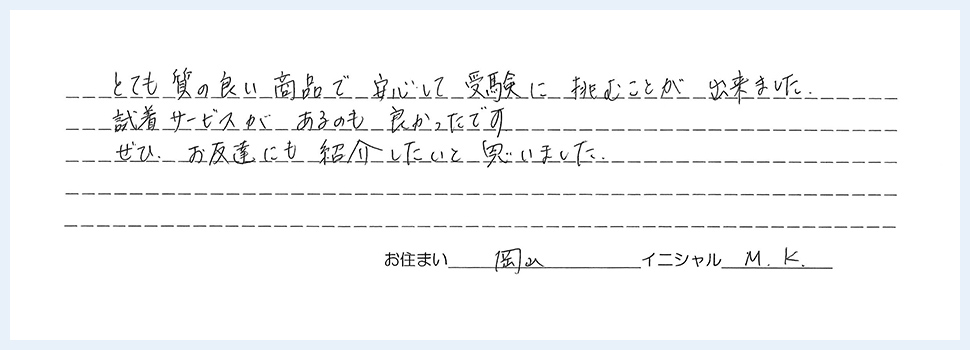 とても質の良い商品で安心して受験に挑むことが出来ました.
試着サービスがあるのも良かったです
ぜひ.お友達にも紹介したいと思いました.
お住まい 岡山 イニシャル M.K.